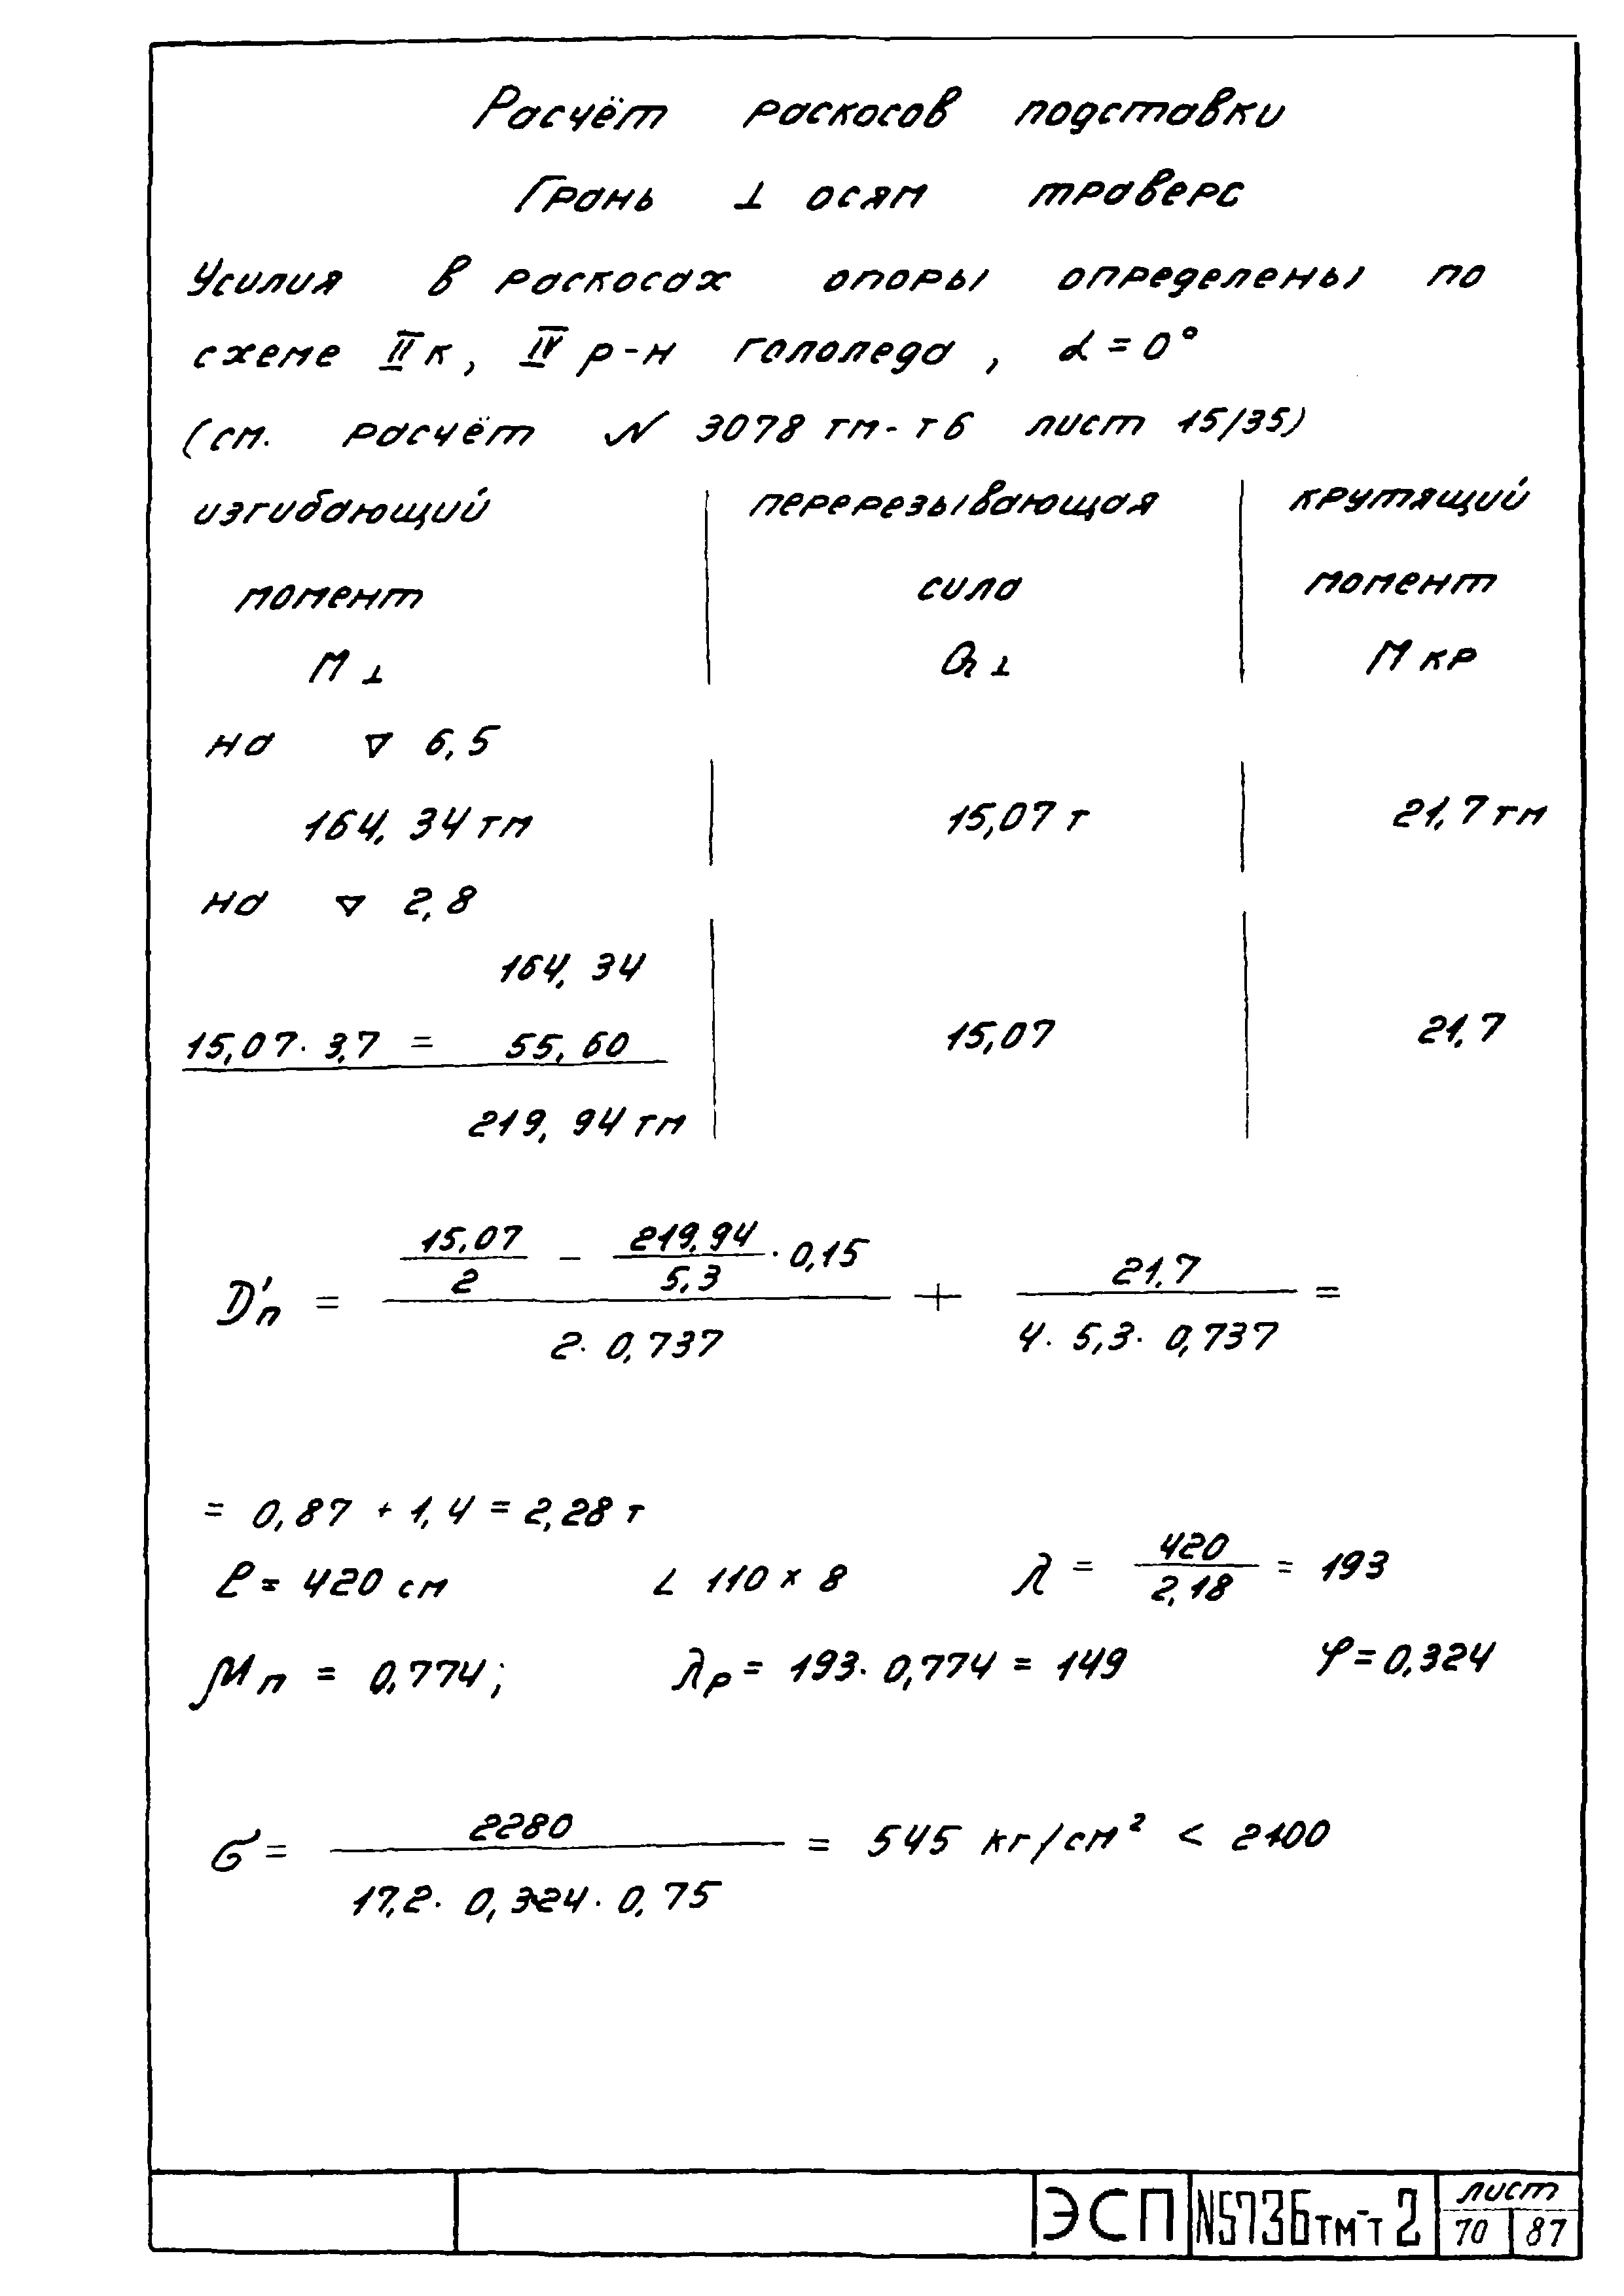 Расчёт раскосов подставки
Грань ⊥ осям траверс
Усилия в раскосах опоры определены по
схеме IIк, IV р-н гололеда, α = 0°
(см. расчёт № 3078 тм-т6 лист 15/35)
изгибающий перерезывающая крутящий
момент сила момент
М⊥ Q⊥ Мкр
на ▽ 6,5
164,34 тм 15,07 т 21,7 тм
на ▽ 2,8
164,34
15,07 · 3,7 = 55,60 15,07 21,7
219,94 тм
15,07 / 2 − 219,94 / 5,3 · 0,15 21,7
D'п = ———— + ———— =
2 · 0,737 4 · 5,3 · 0,737
= 0,87 + 1,4 = 2,28 т
ℓ = 420 см L 110 × 8 λ = 420 / 2,18 = 193
μп = 0,774; λр = 193 · 0,774 = 149 φ = 0,324
σ = 2280 / 17,2 · 0,324 · 0,75 = 545 кг/см² < 2100
ЭСП N5736тм-т2 лист
70 87